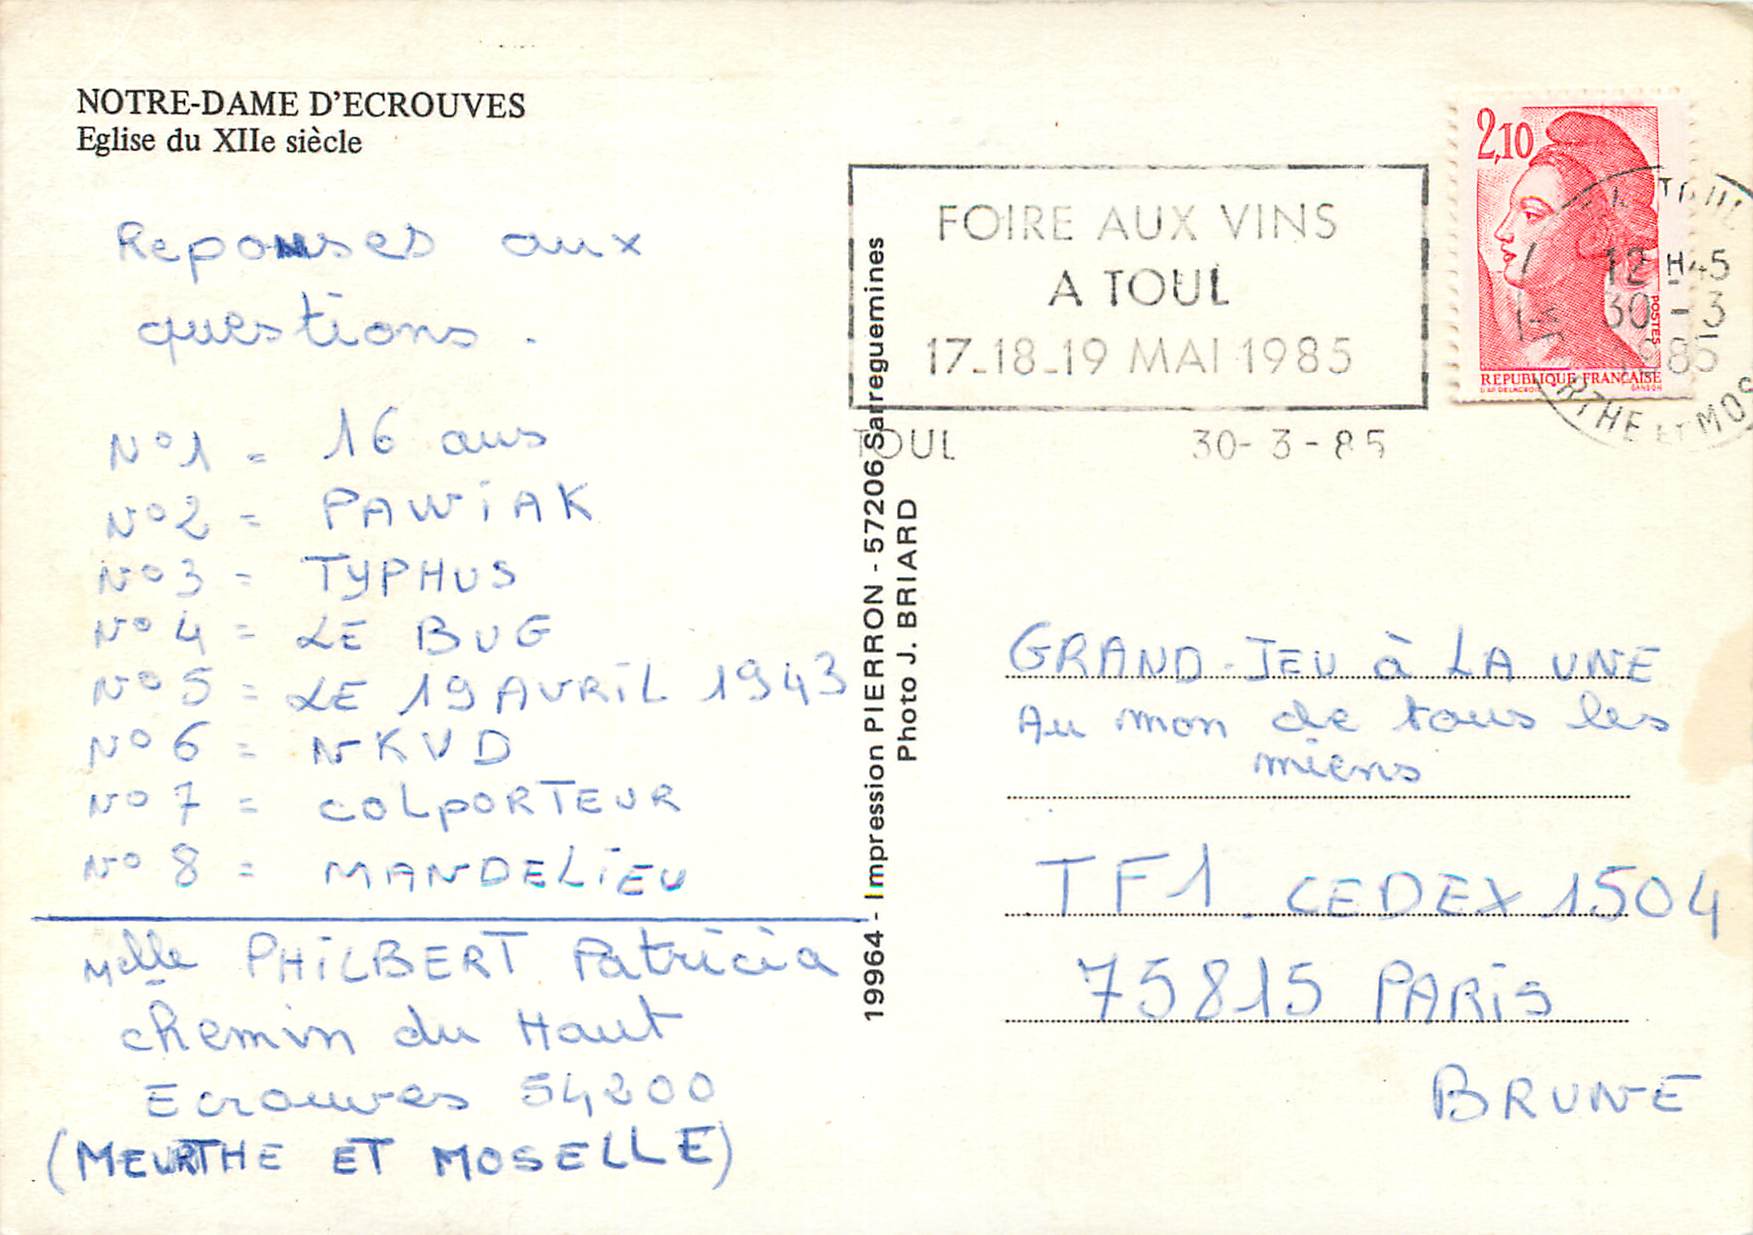 NOTRE-DAME D'ECROUVES
Eglise du XIIe siècle
Reponses aux
questions.
N°1 = 16 ans
N°2 = PAWIAK
N°3 = TYPHUS
N°4 = LE BUG
N°5 = LE 19 AVRIL 1943
N°6 = NKVD
N°7 = COLPORTEUR
N°8 = MANDELIEU
Melle PHILBERT Patricia
chemin du Haut
Ecrouves 54200
(MEURTHE ET MOSELLE)
19964 - Impression PIERRON - 57206 Sarreguemines
Photo J. BRIARD
FOIRE AUX VINS
A TOUL
17_18_19 MAI 1985
TOUL 30-3-85
2,10
POSTES
REPUBLIQUE FRANÇAISE
TOUL
12H45
30-3
1985
RTHE ET MOS
GRAND-JEU à LA UNE
Au mon de tous les
miens
TF1. CEDEX 1504
75815 PARIS
BRUNE